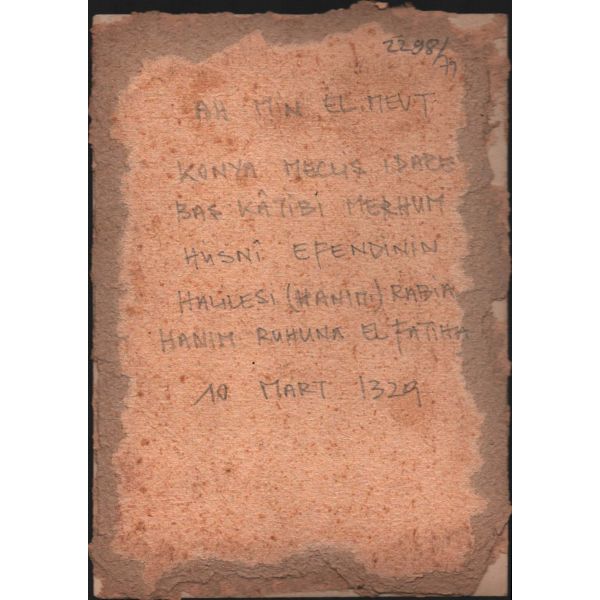 2298/79
AH MİN EL.MEVT
KONYA MECLİS İDARE
BAŞ KÂTİBİ MERHUM
HÜSNÎ EFENDİNİN
HALİLESİ (HANIMI) RABİA
HANIM RUHUNA EL FATİHA
10 MART 1329